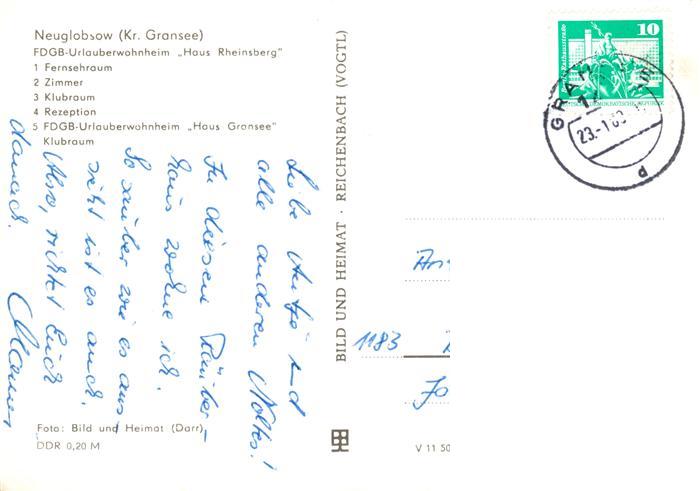 Neuglobsow (Kr. Gransee)
FDGB-Urlauberwohnheim „Haus Rheinsberg"
1 Fernsehraum
2 Zimmer
3 Klubraum
4 Rezeption
5 FDGB-Urlauberwohnheim „Haus Gransee"
Klubraum
Liebe Antje und
alle anderen Noltes!
In diesem Räuber-
haus wohne ich.
So sauber wie es aus-
sieht ist es auch.
Also, richtet Euch
danach.
Foto: Bild und Heimat (Darr)
DDR 0,20 M
BILD UND HEIMAT · REICHENBACH (VOGTL)
V 11 50
10
Rathausstraße
DEUTSCHE DEMOKRATISCHE REPUBLIK
GRAN
23.-1.80
d
1183